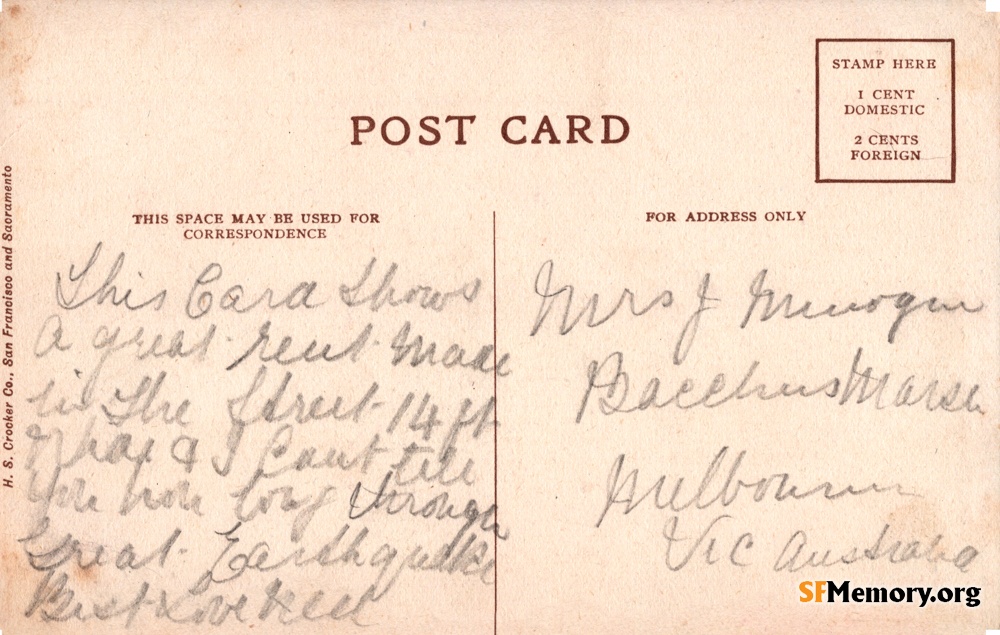 POST CARD
STAMP HERE
1 CENT
DOMESTIC
2 CENTS
FOREIGN
THIS SPACE MAY BE USED FOR
CORRESPONDENCE
This Card Shows
A great rent made
in The Street 14 ft
& I Cant tell
you how long through
Great Earthquake
Best Love Nell
FOR ADDRESS ONLY
Mrs J
Bacchus Marsh
Melbourne
Vic Australia
H. S. Crocker Co., San Francisco and Sacramento
SFMemory.org